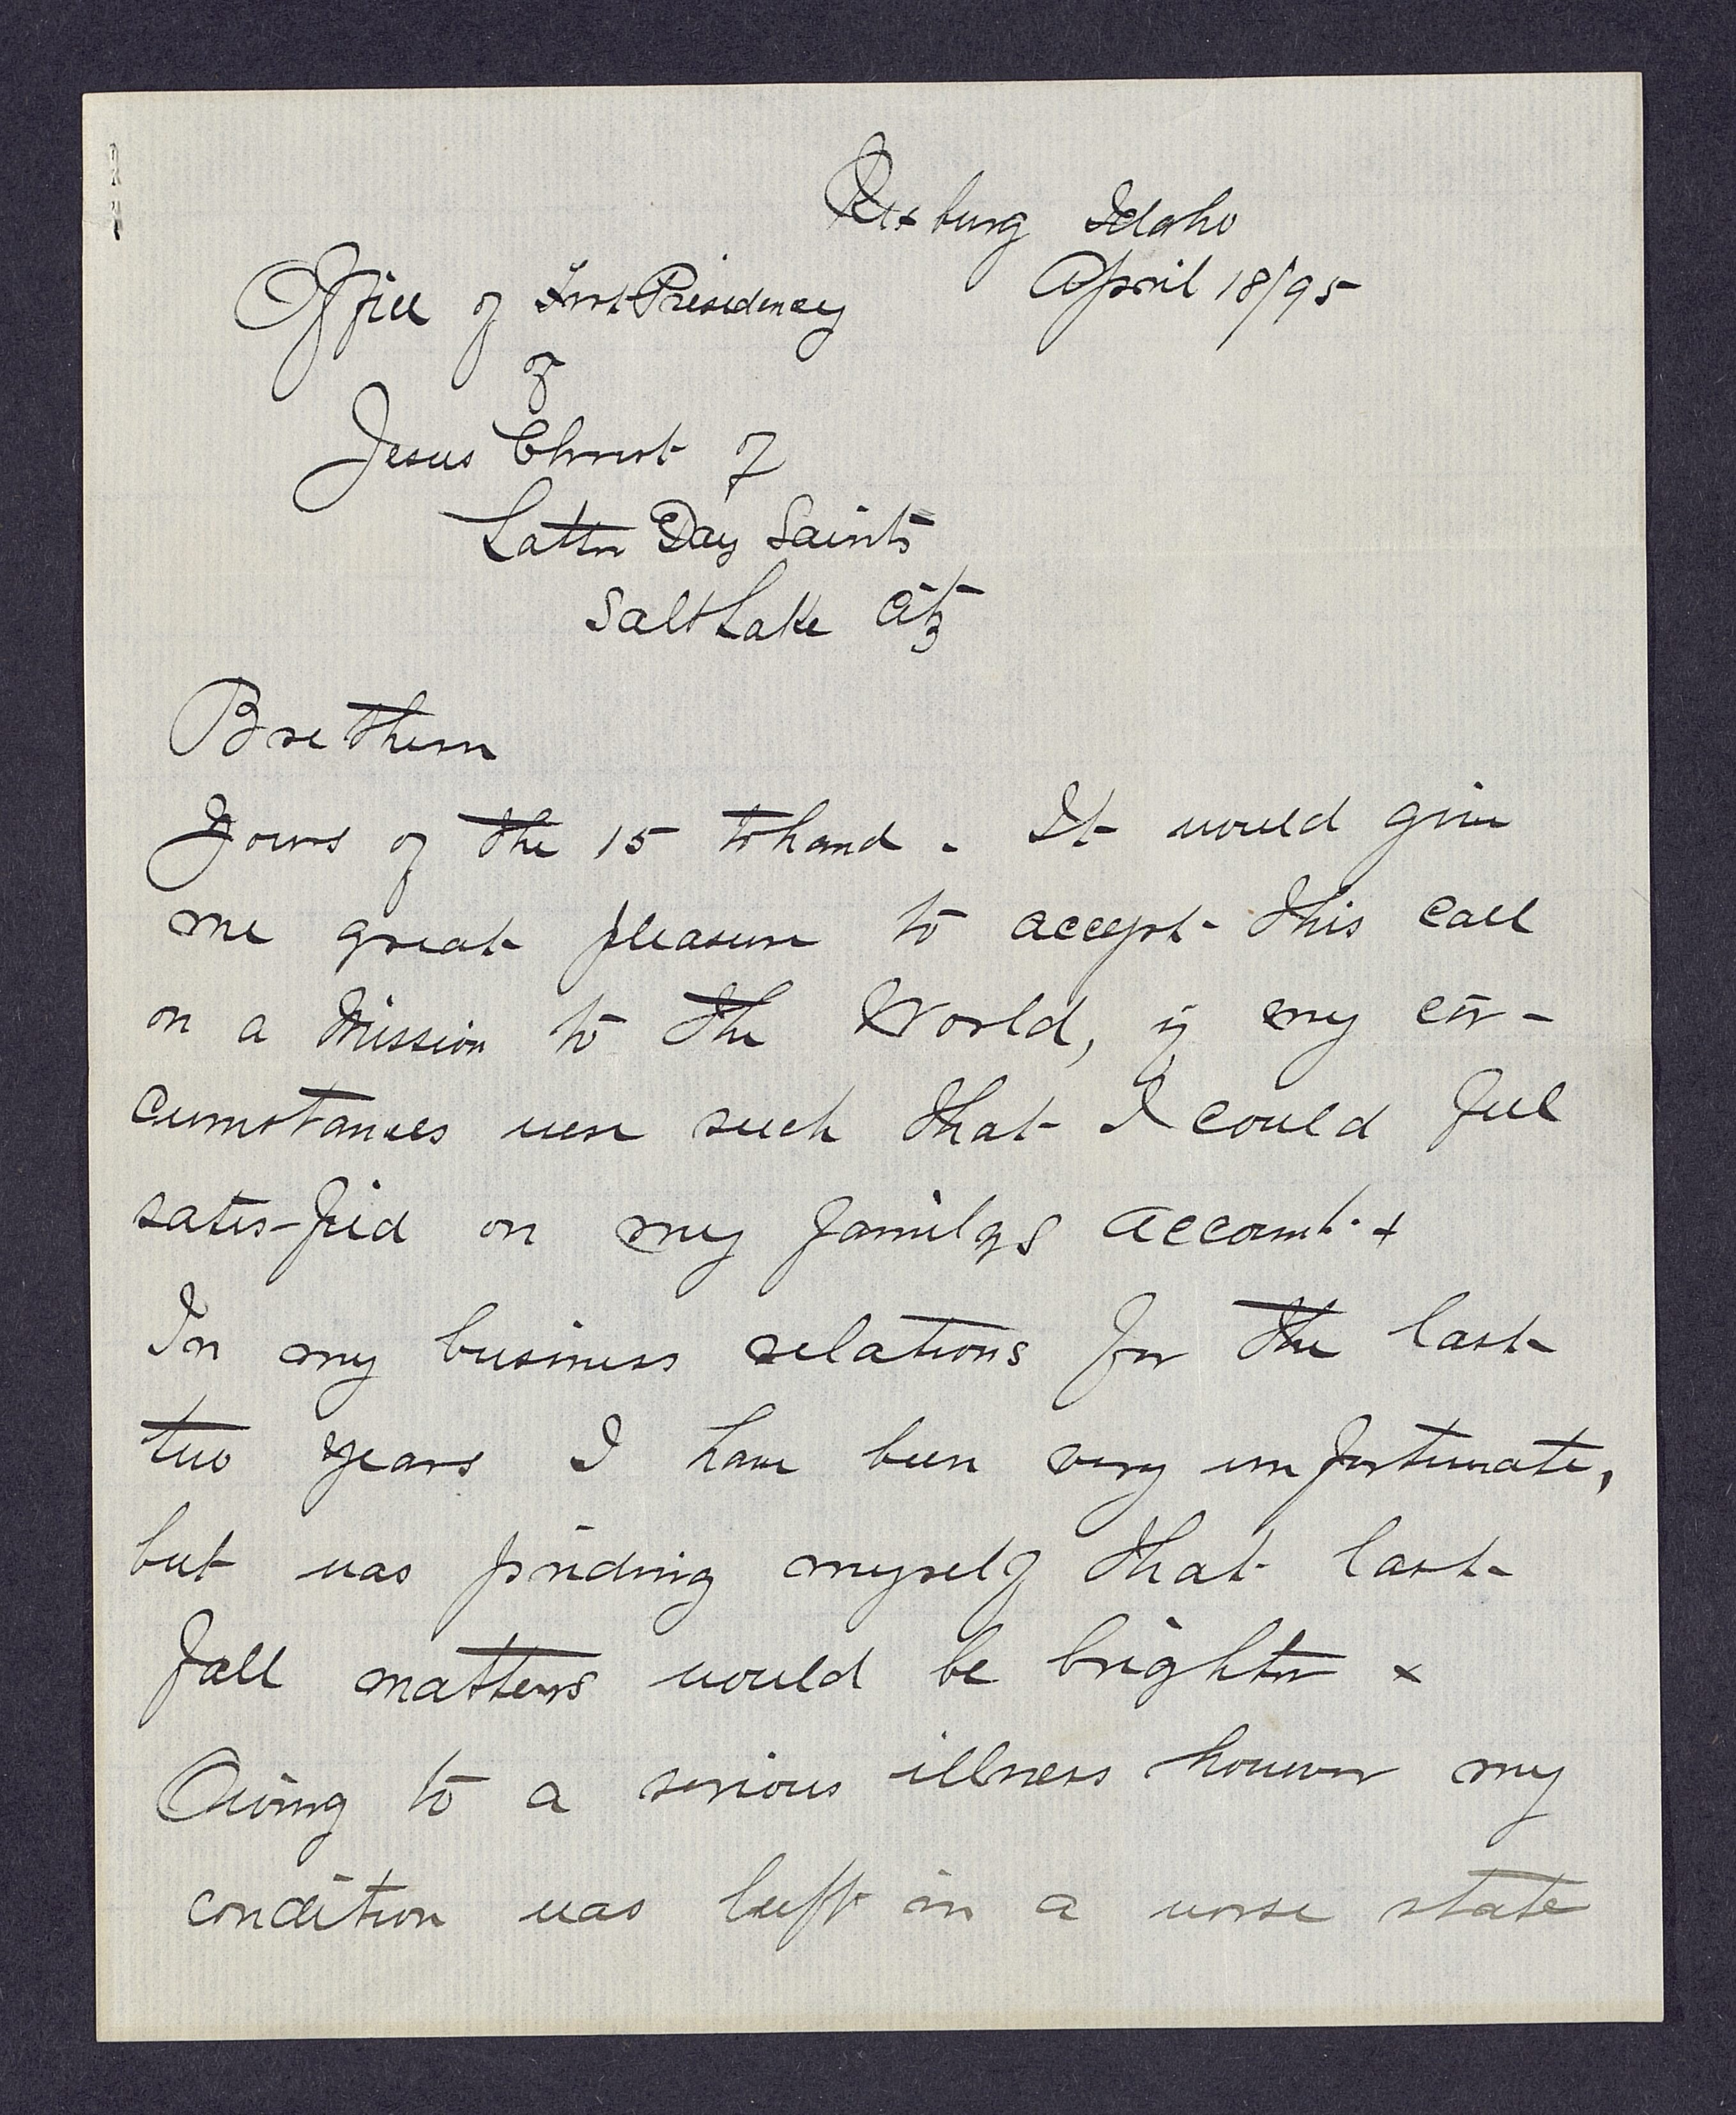 Rexburg Idaho
April 18/95
Office of First Presidency
of
Jesus Christ of
Latter Day Saints
Salt Lake City
Brethern
Yours of the 15 to hand. It would give
me great pleasure to accept this call
on a Mission to the World, if my cir-
cumstances were such that I could feel
satis-fied on my familys account. +
In my business relations for the last
two years I have been very unfortunate,
but was priding myself that last
fall matters would be brighter x
Owing to a serious illness however my
condition was left in a worse state